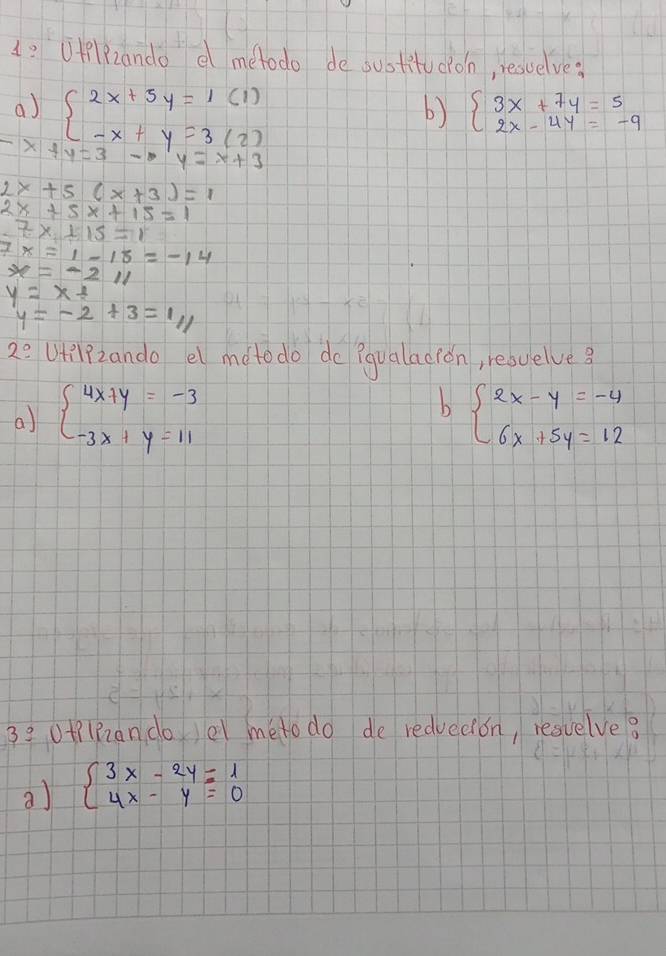 1º Utilizando el método de sustitución, resuelve:
a) { 2x + 5y = 1 (1)
-x + y = 3 (2)
b) { 3x + 7y = 5
2x - 4y = -9
-x + y = 3 → y = x + 3
2x + 5 (x + 3) = 1
2x + 5x + 15 = 1
7x + 15 = 1
7x = 1 - 15 = -14
x = -2 //
y = x +
y = -2 + 3 = 1 //
2º Utilizando el método de igualación, resuelve:
a) { 4x + y = -3
-3x + y = 11
b { 2x - y = -4
6x + 5y = 12
3º Utilizando el método de reducción, resuelve:
a) { 3x - 2y = 1
4x - y = 0